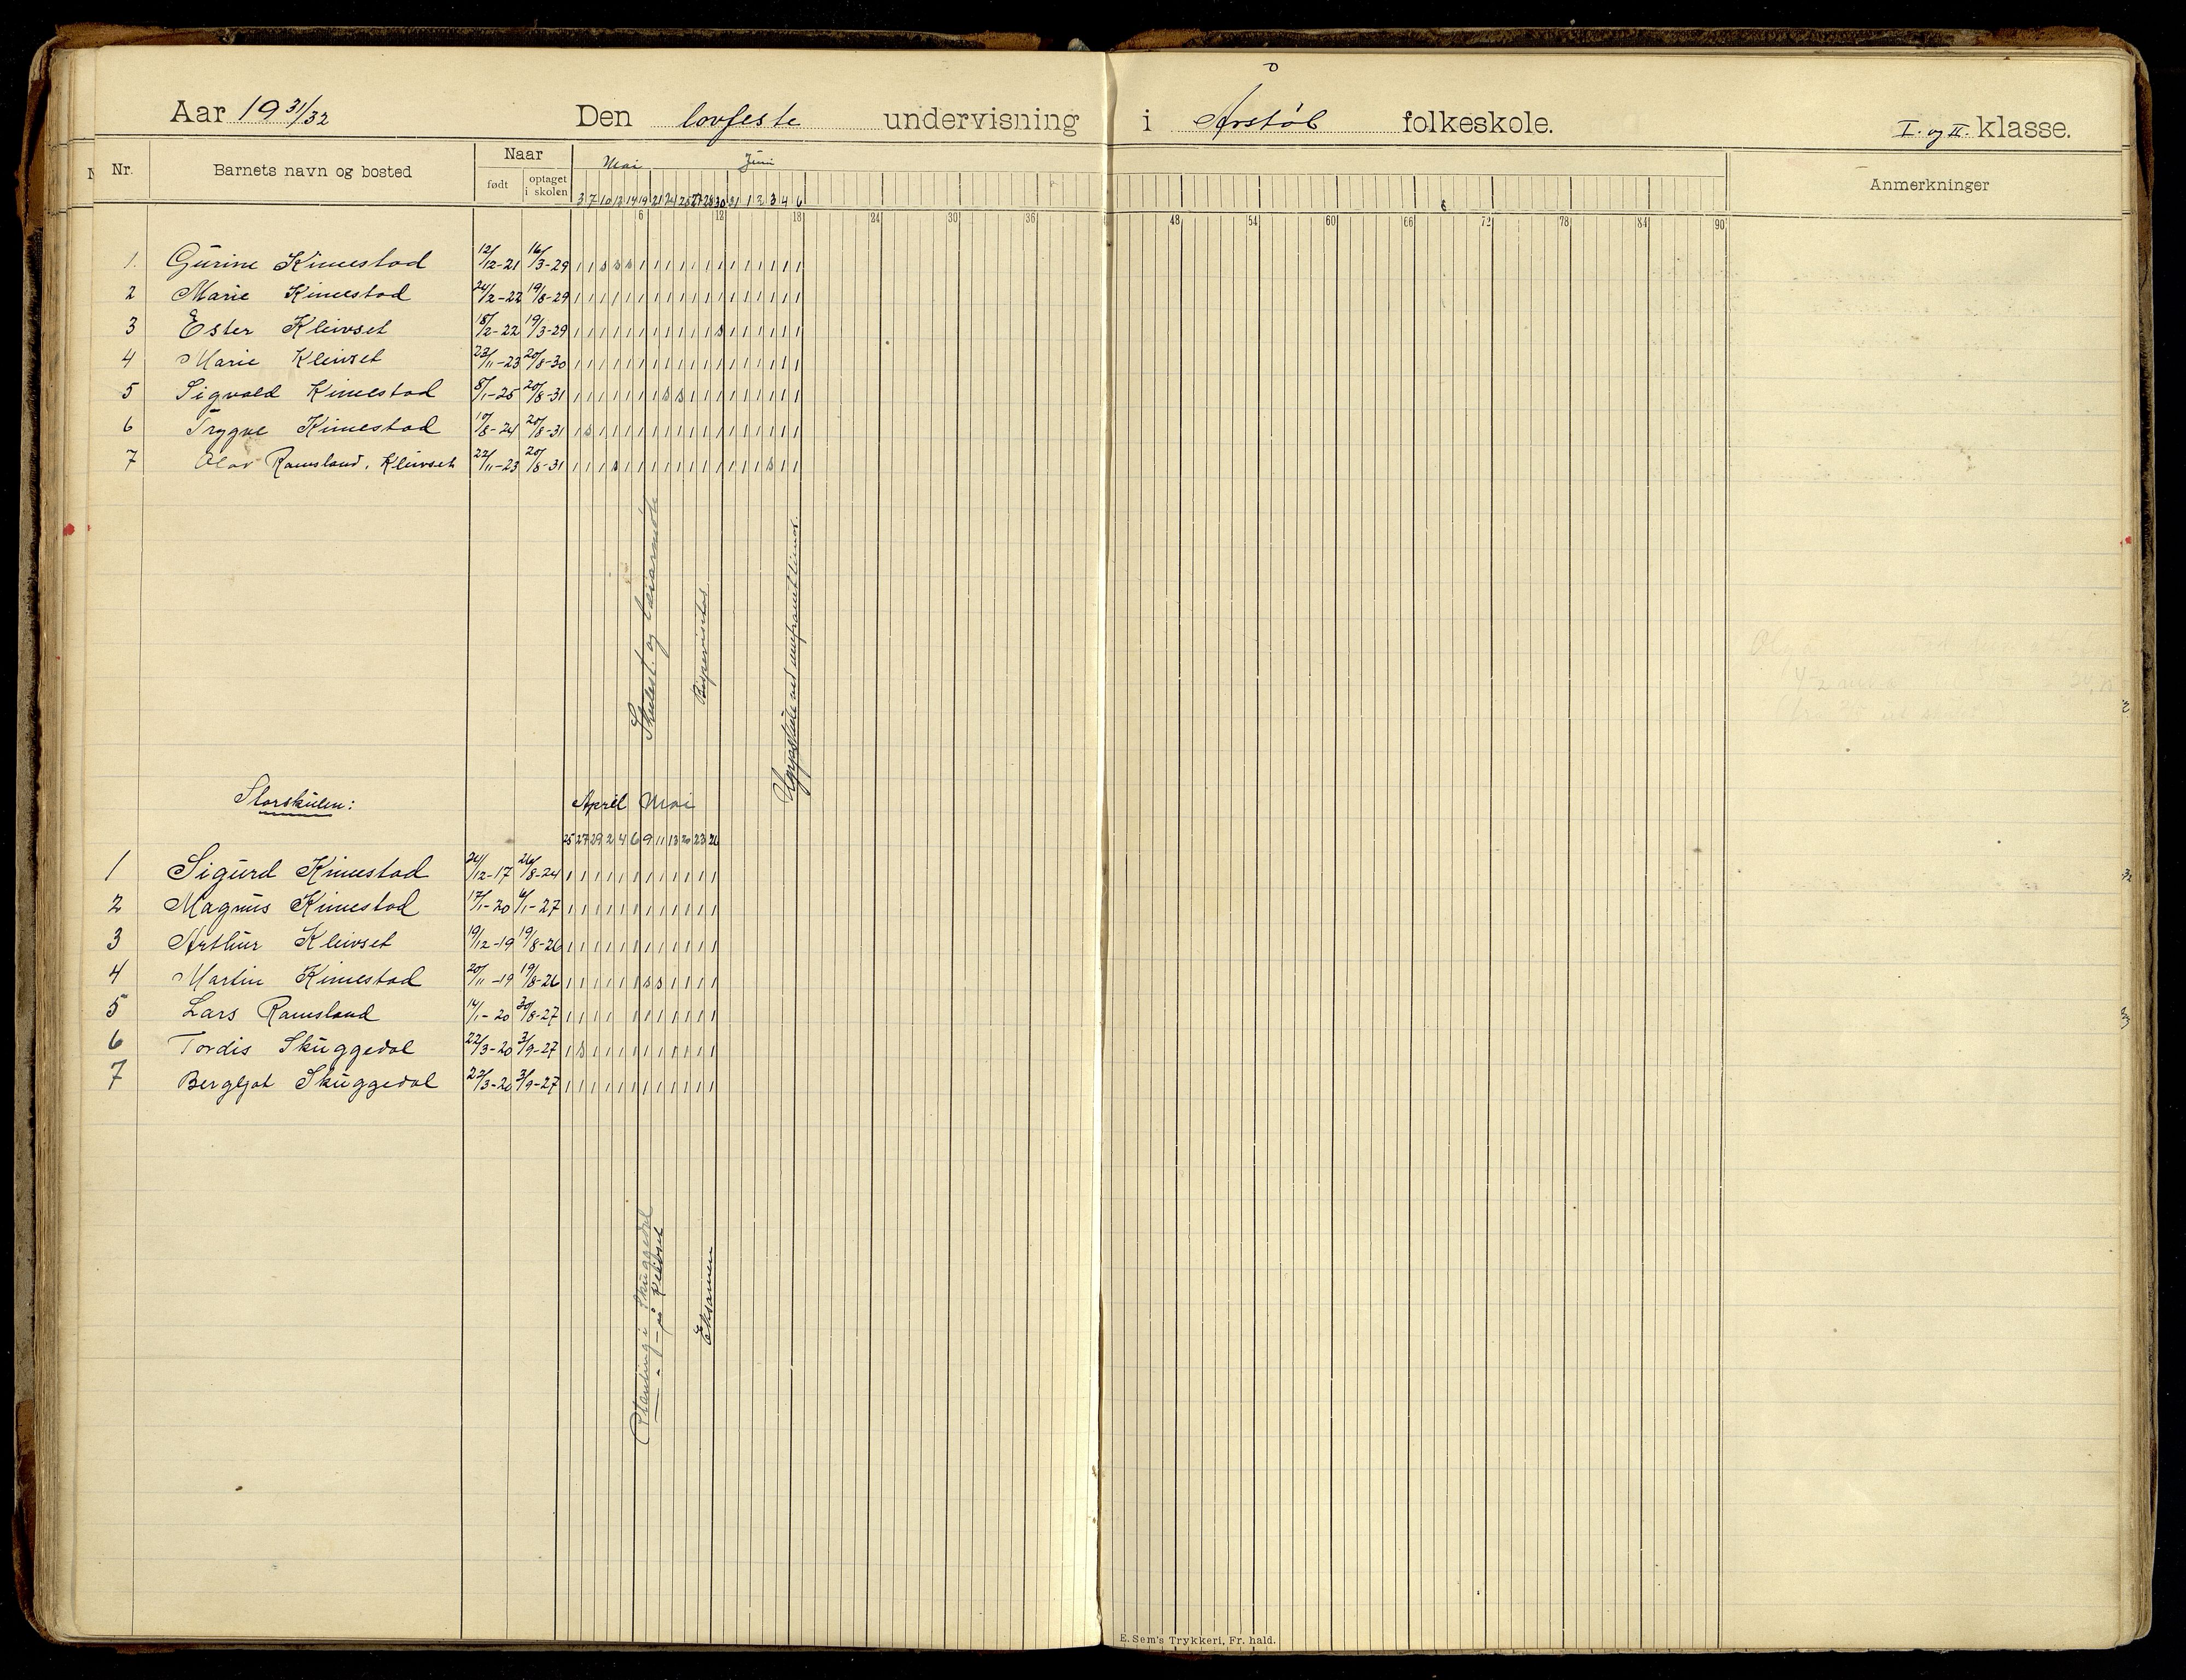 Aar 19 31/32 Den lovfeste undervisning i Årstøl folkeskole. I. og II. klasse.
Nr. Barnets navn og bosted Naar født optaget i skolen Mai Juni Anmerkninger
3 7 10 12 14 19 21 24 25 27 28 30 31 1 2 3 4 6
6 12 18 24 30 36 48 54 60 66 72 78 84 90
1. Gurine Kimestad 12/12-21 16/3-29
2 Marie Kimestad 24/2-22 19/8-29
3 Ester Kleivset 18/2-22 19/3-29
4 Marie Kleivset 23/11-23 20/8-30
5 Sigvald Kimestad 8/1-25 20/8-31
6 Trygve Kimestad 10/8-24 20/8-31
7 Olav Ramsland, Kleivset 22/11-23 20/8-31
Skulest. og lærarmøte
Bispevisitas
Storskulen: April Mai
25 27 29 2 4 6 9 11 13 20 23 26
1 Sigurd Kimestad 24/12-17 26/8-24
2 Magnus Kimestad 17/1-20 6/1-27
3 Arthur Kleivset 19/12-19 19/8-26
4 Martin Kimestad 20/11-19 19/8-26
5 Lars Ramsland 14/1-20 30/8-27
6 Tordis Skuggedal 22/3-20 3/9-27
7 Bergljot Skuggedal 22/3-20 3/9-27
Planting i Skuggedal
—"— på Kleivset
Eksamen
E. Sem's Trykkeri, Fr. hald.